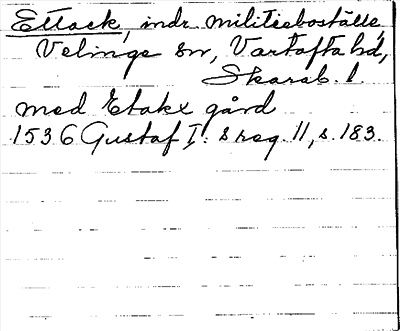 Ettack, indr militieboställe,
Velinge sn, Vartofta hd,
Skarab. l.
med Etakx gård
1536 Gustaf I: s reg. 11, s. 183.